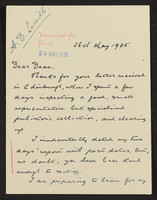 26th May. 1935.
28 MAY 1935
Dear Dean,
Thanks for your letter received
in Edinburgh, where I spent a few
days inspecting a good, quite
representative but specialised
collection, and clearing
up.
I inadvertently dated my two
days' report with past dates, but,
no doubt, you have been kind
enough to
I am preparing to leave for my